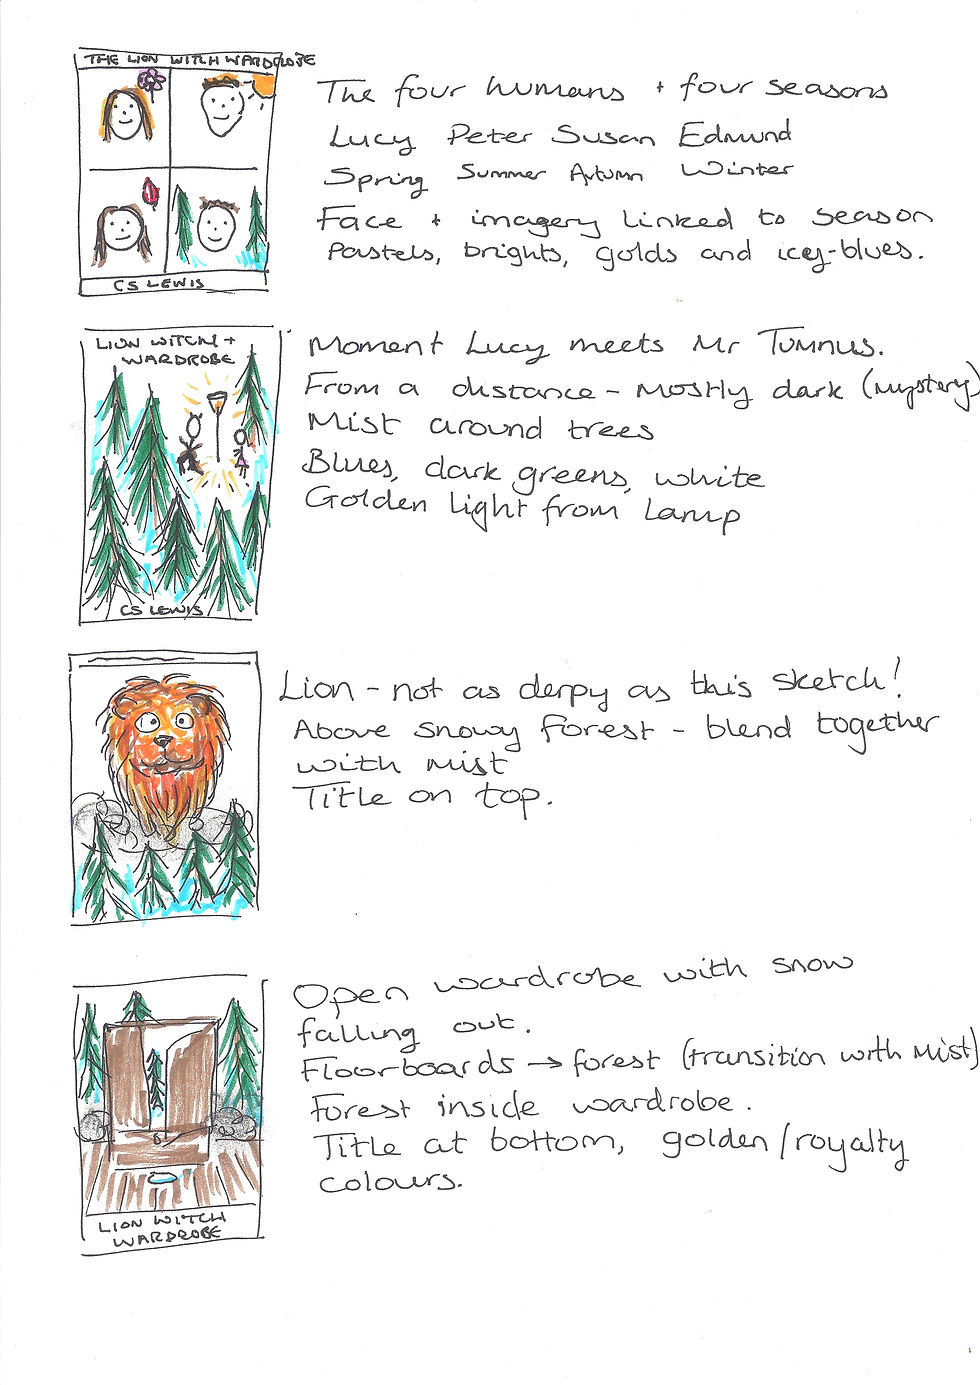 THE LION WITCH WARDROBE
CS LEWIS
The four humans + four seasons
Lucy Peter Susan Edmund
Spring Summer Autumn Winter
Face + imagery linked to season
Pastels, brights, golds and icey-blues.
LION WITCH +
WARDROBE
CS LEWIS
Moment Lucy meets Mr Tumnus.
From a distance - Mostly dark (mystery)
Mist around trees
Blues, dark greens, white
Golden light from Lamp
Lion - not as derpy as this sketch!
Above snowy forest - blend together
with mist
Title on top.
Open wardrobe with snow
falling out.
Floorboards → forest (transition with mist)
Forest inside wardrobe.
Title at bottom, golden/royalty
colours.
LION WITCH
WARDROBE